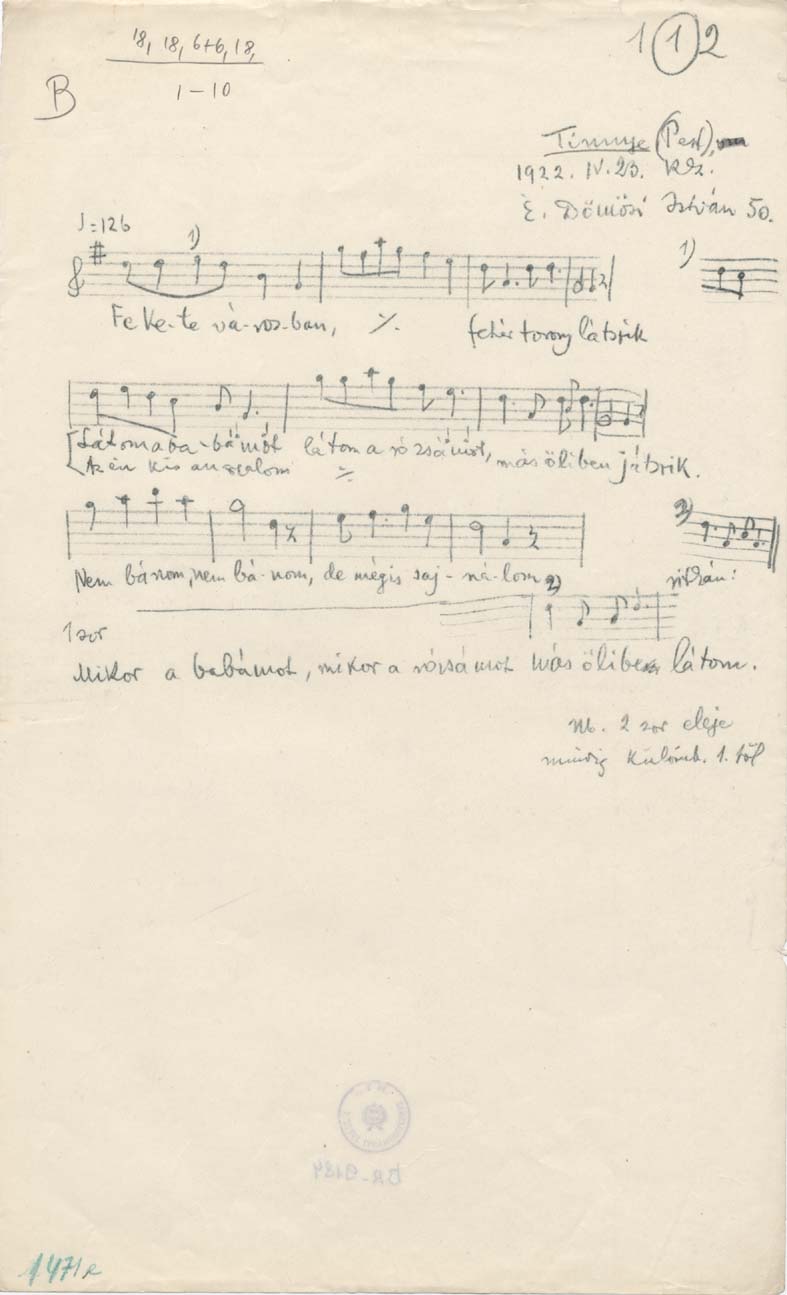 18, 18, 6+6, 18,
1 1 2
B
1-10
Tinnye (Pest),
1922. IV. 23. Kz.
É. Dömösi István 50.
♩=126
1)
1)
Fe-ke-te vá-ros-ban, ·/. fehér torony látszik
Látom a ba-bámot látom a rózsámot, más öliben játszik.
Az én kis angyalom ·/.
2)
Nem bánom, nem bá-nom, de mégis saj-ná-lom
2)
ritkán:
1 sor
Mikor a babámot, mikor a rózsámot más ölibe látom.
Nb. 2 sor eleje
mindig különb. 1. től
BR-9184
1471e